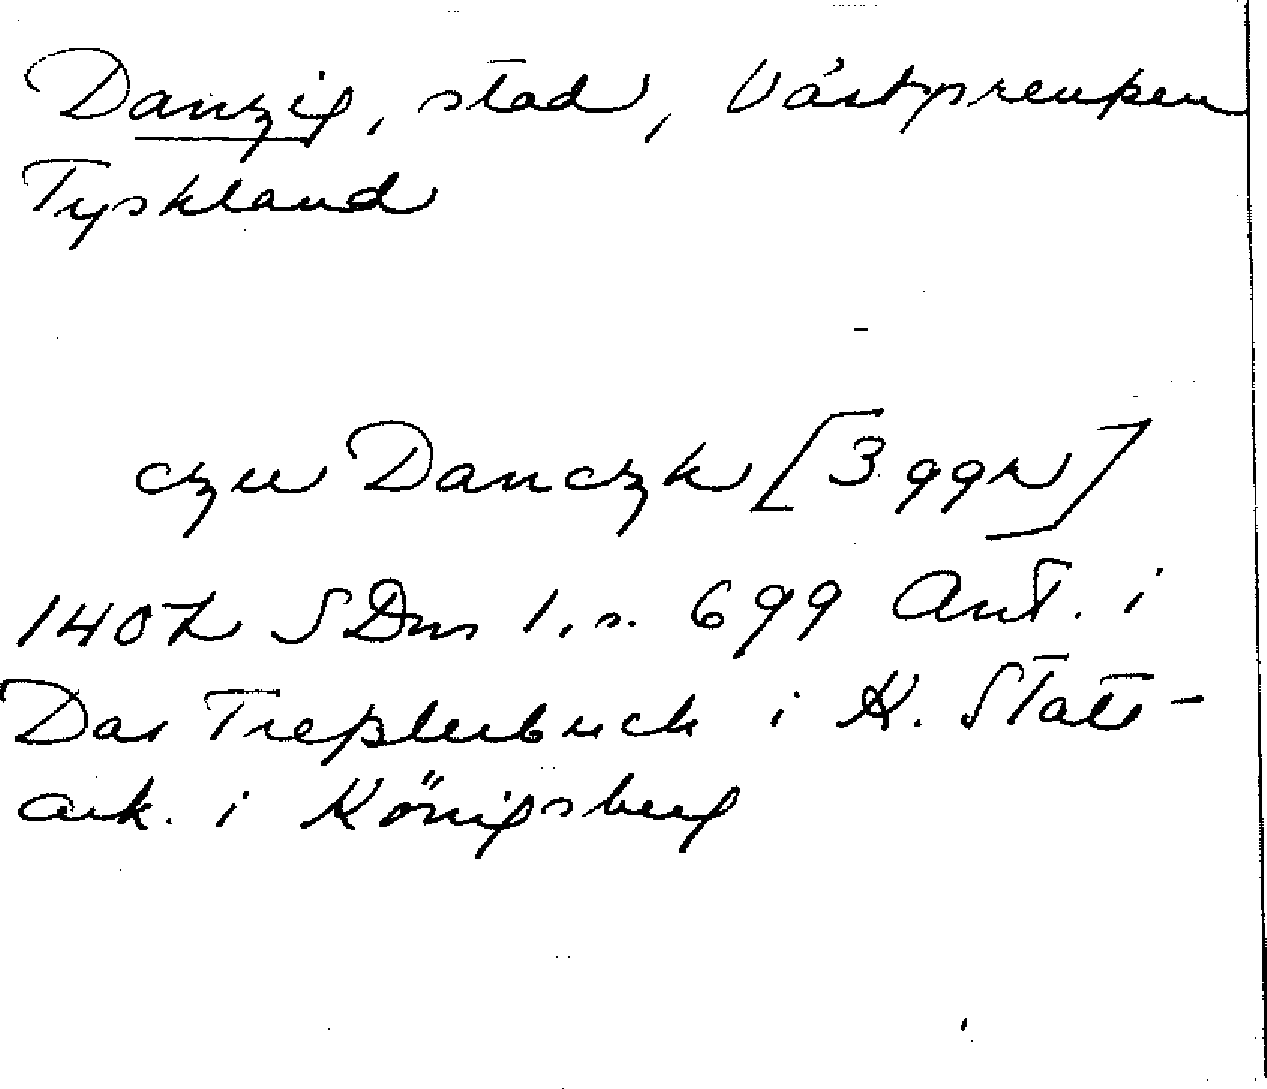 Danzig, stad, Västpreußen
Tyskland
czu Danczk [3 ggr]
1407 SDns 1, s. 699 Ant. i
Das Treßlerbuch i K. Stats-
ark. i Königsberg